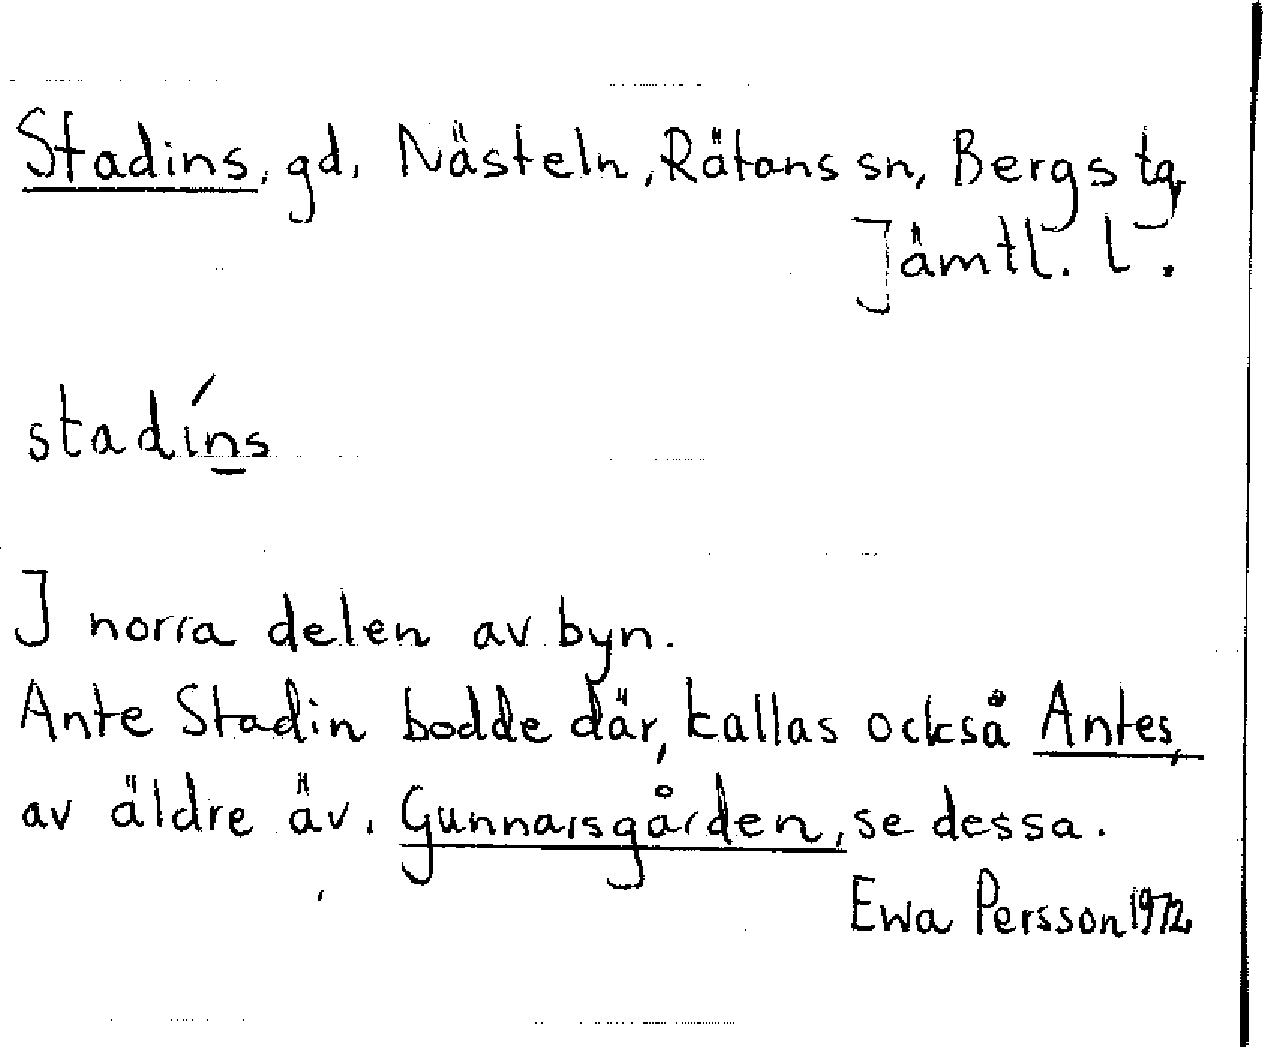 Stadins, gd, Nästeln, Rätans sn, Bergs tg,
Jämtl. l.
stadíns
I norra delen av byn.
Ante Stadin bodde där, kallas också Antes,
av äldre äv. Gunnarsgården, se dessa.
Ewa Persson 1972